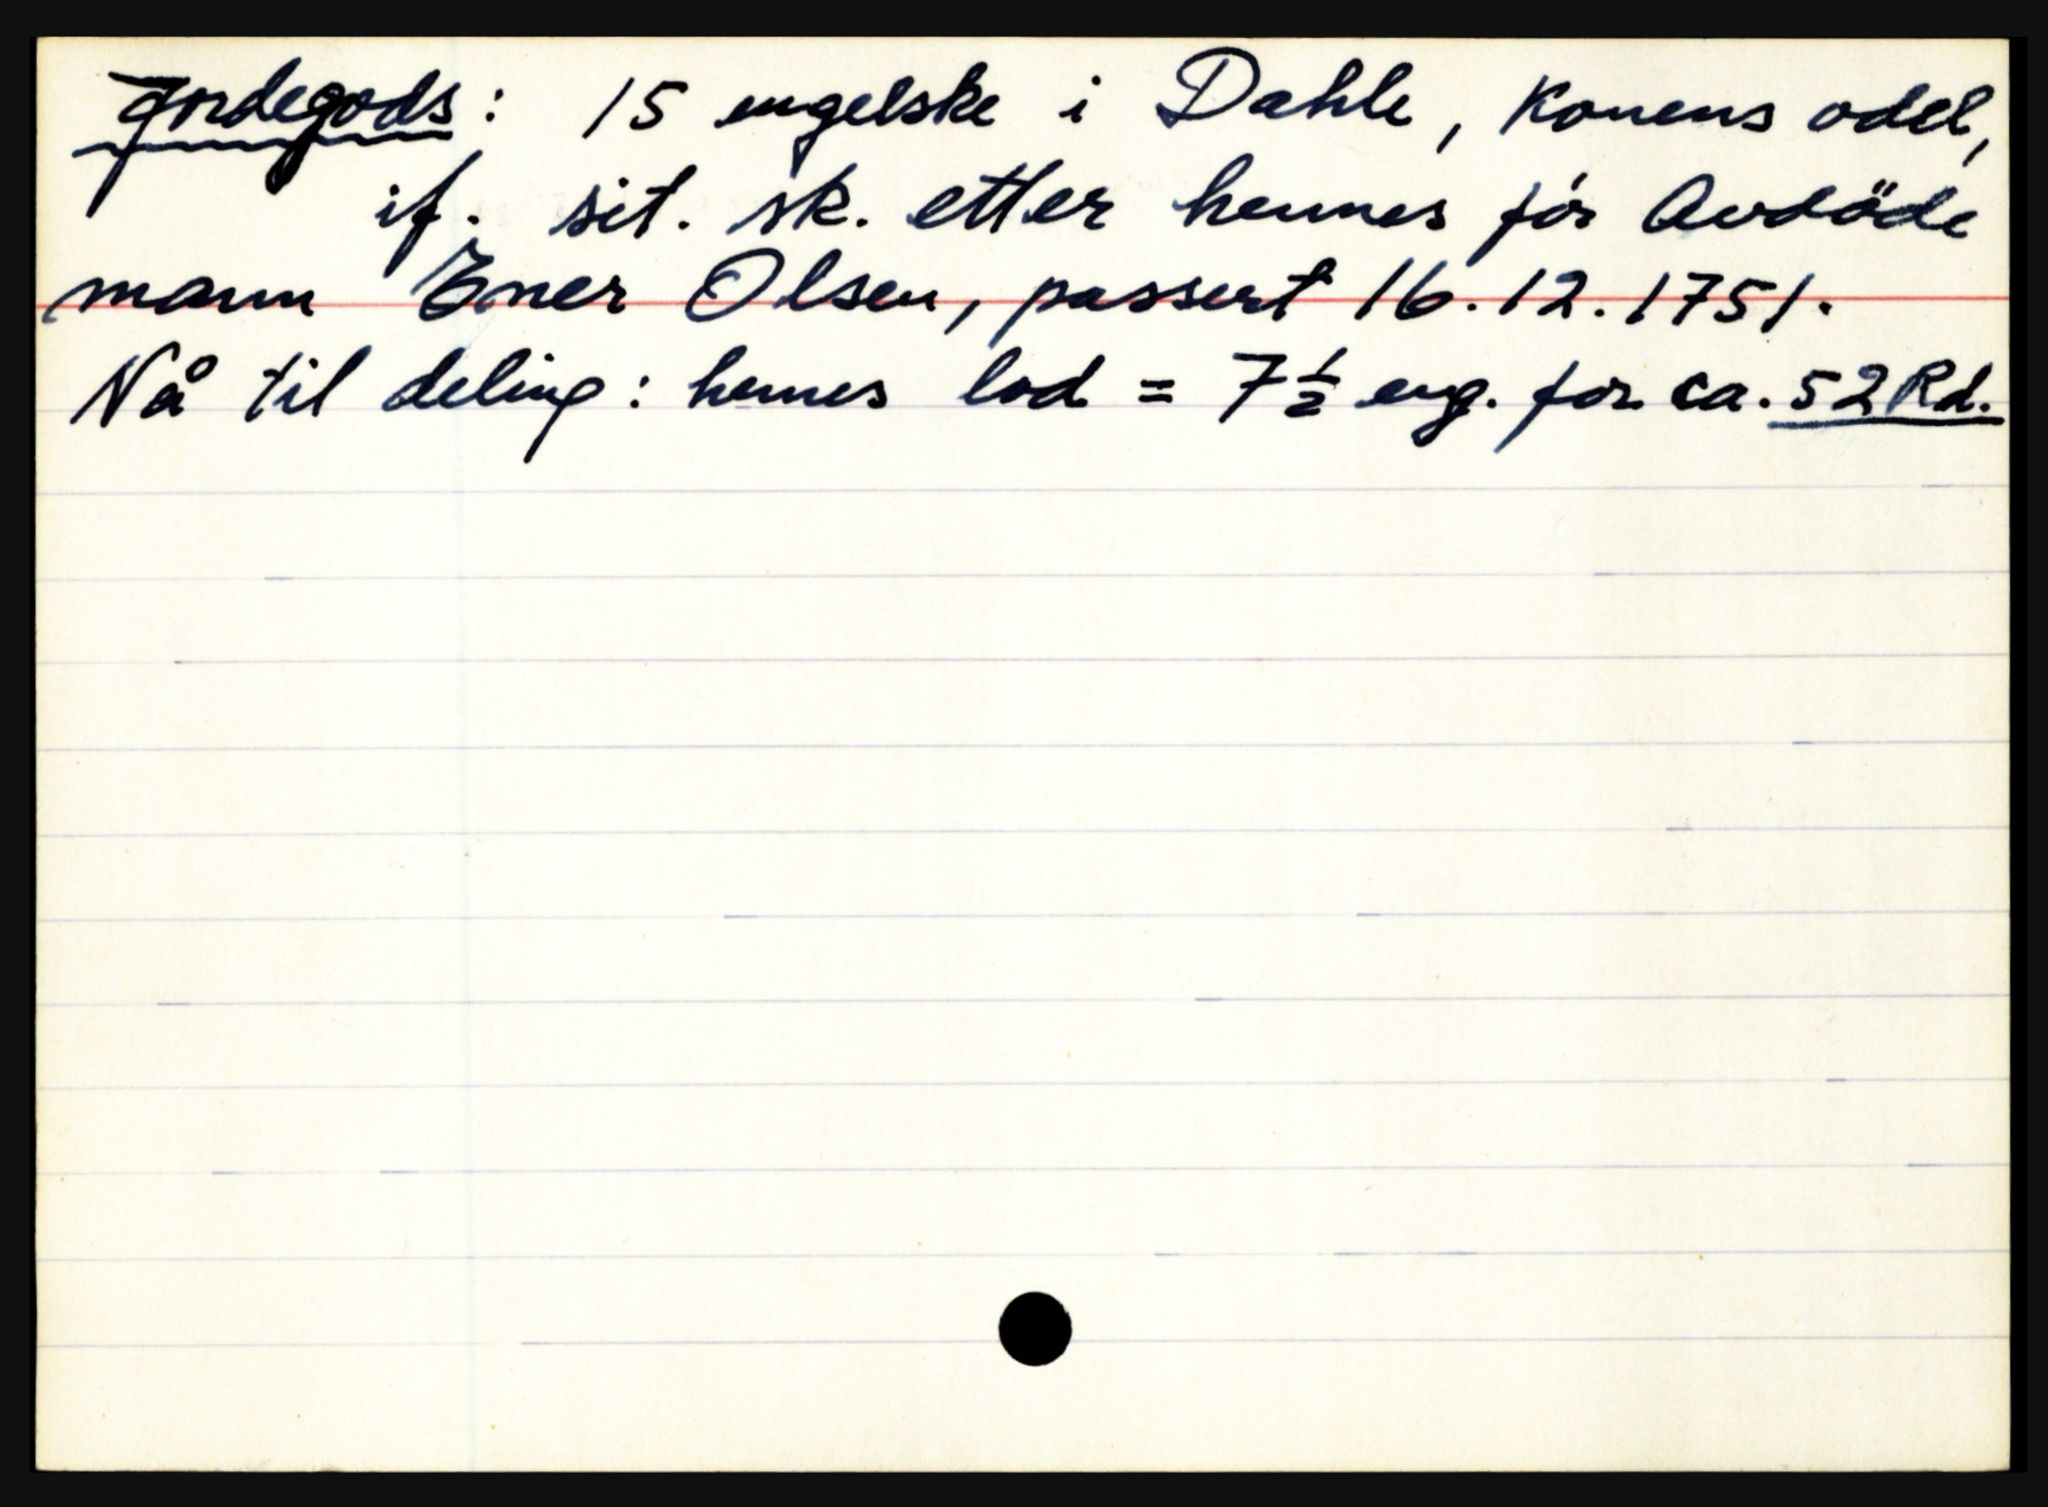 Jordegods: 15 engelske i Dahle, Konens odel,
if. sit. sk. etter hennes før Avdöde
mann Ener Olsen, passert 16.12.1751.
Nå til deling: hennes lod = 7 ½ eng. for ca. 52 Rd.